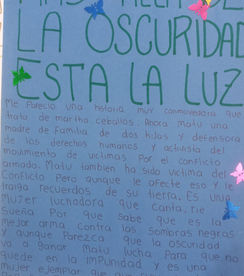 MAS ALLÁ DE
LA OSCURIDAD
ESTA LA LUZ
Me Pareció una historia muy conmovedora que
trata de martha ceballos. Ahora matú una
madre de Familia de dos hijas y defensora
de los derechos humanos y activista del
movimiento de victimas Por el conflicto
armado. Matú tambien ha sido victima del
Conflicto Pero aunque le afecte eso y le
traiga recuerdos de su tierra. Es una
Mujer luchadora que canta, rie y
Sueña Por que Sabe que es la
mejor arma contra las sombras negras
Y aunque Parezca que la oscuridad
va a ganar Matú lucha Para que no
quede en la imPunidad y es una
mujer ejemplar que